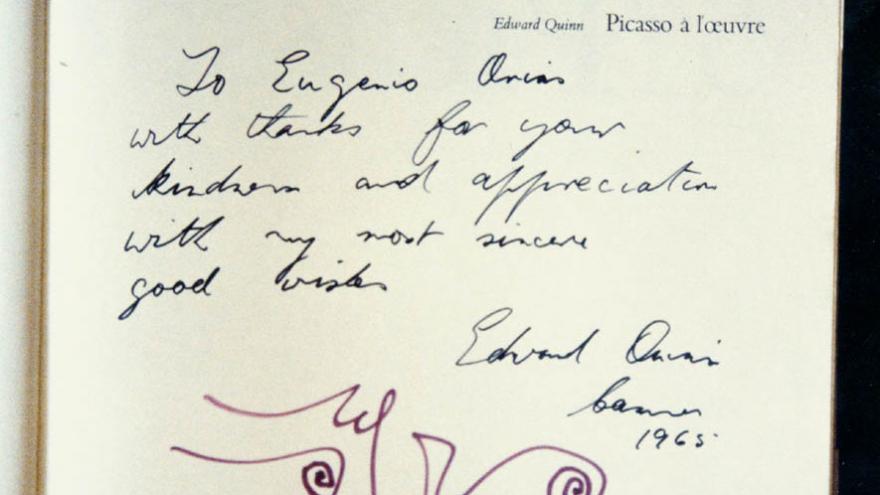 Edward Quinn Picasso à l'œuvre
To Eugenio Arias
with thanks for your
kindness and appreciation
with my most sincere
good wishes
Edward Quinn
Cannes
1965